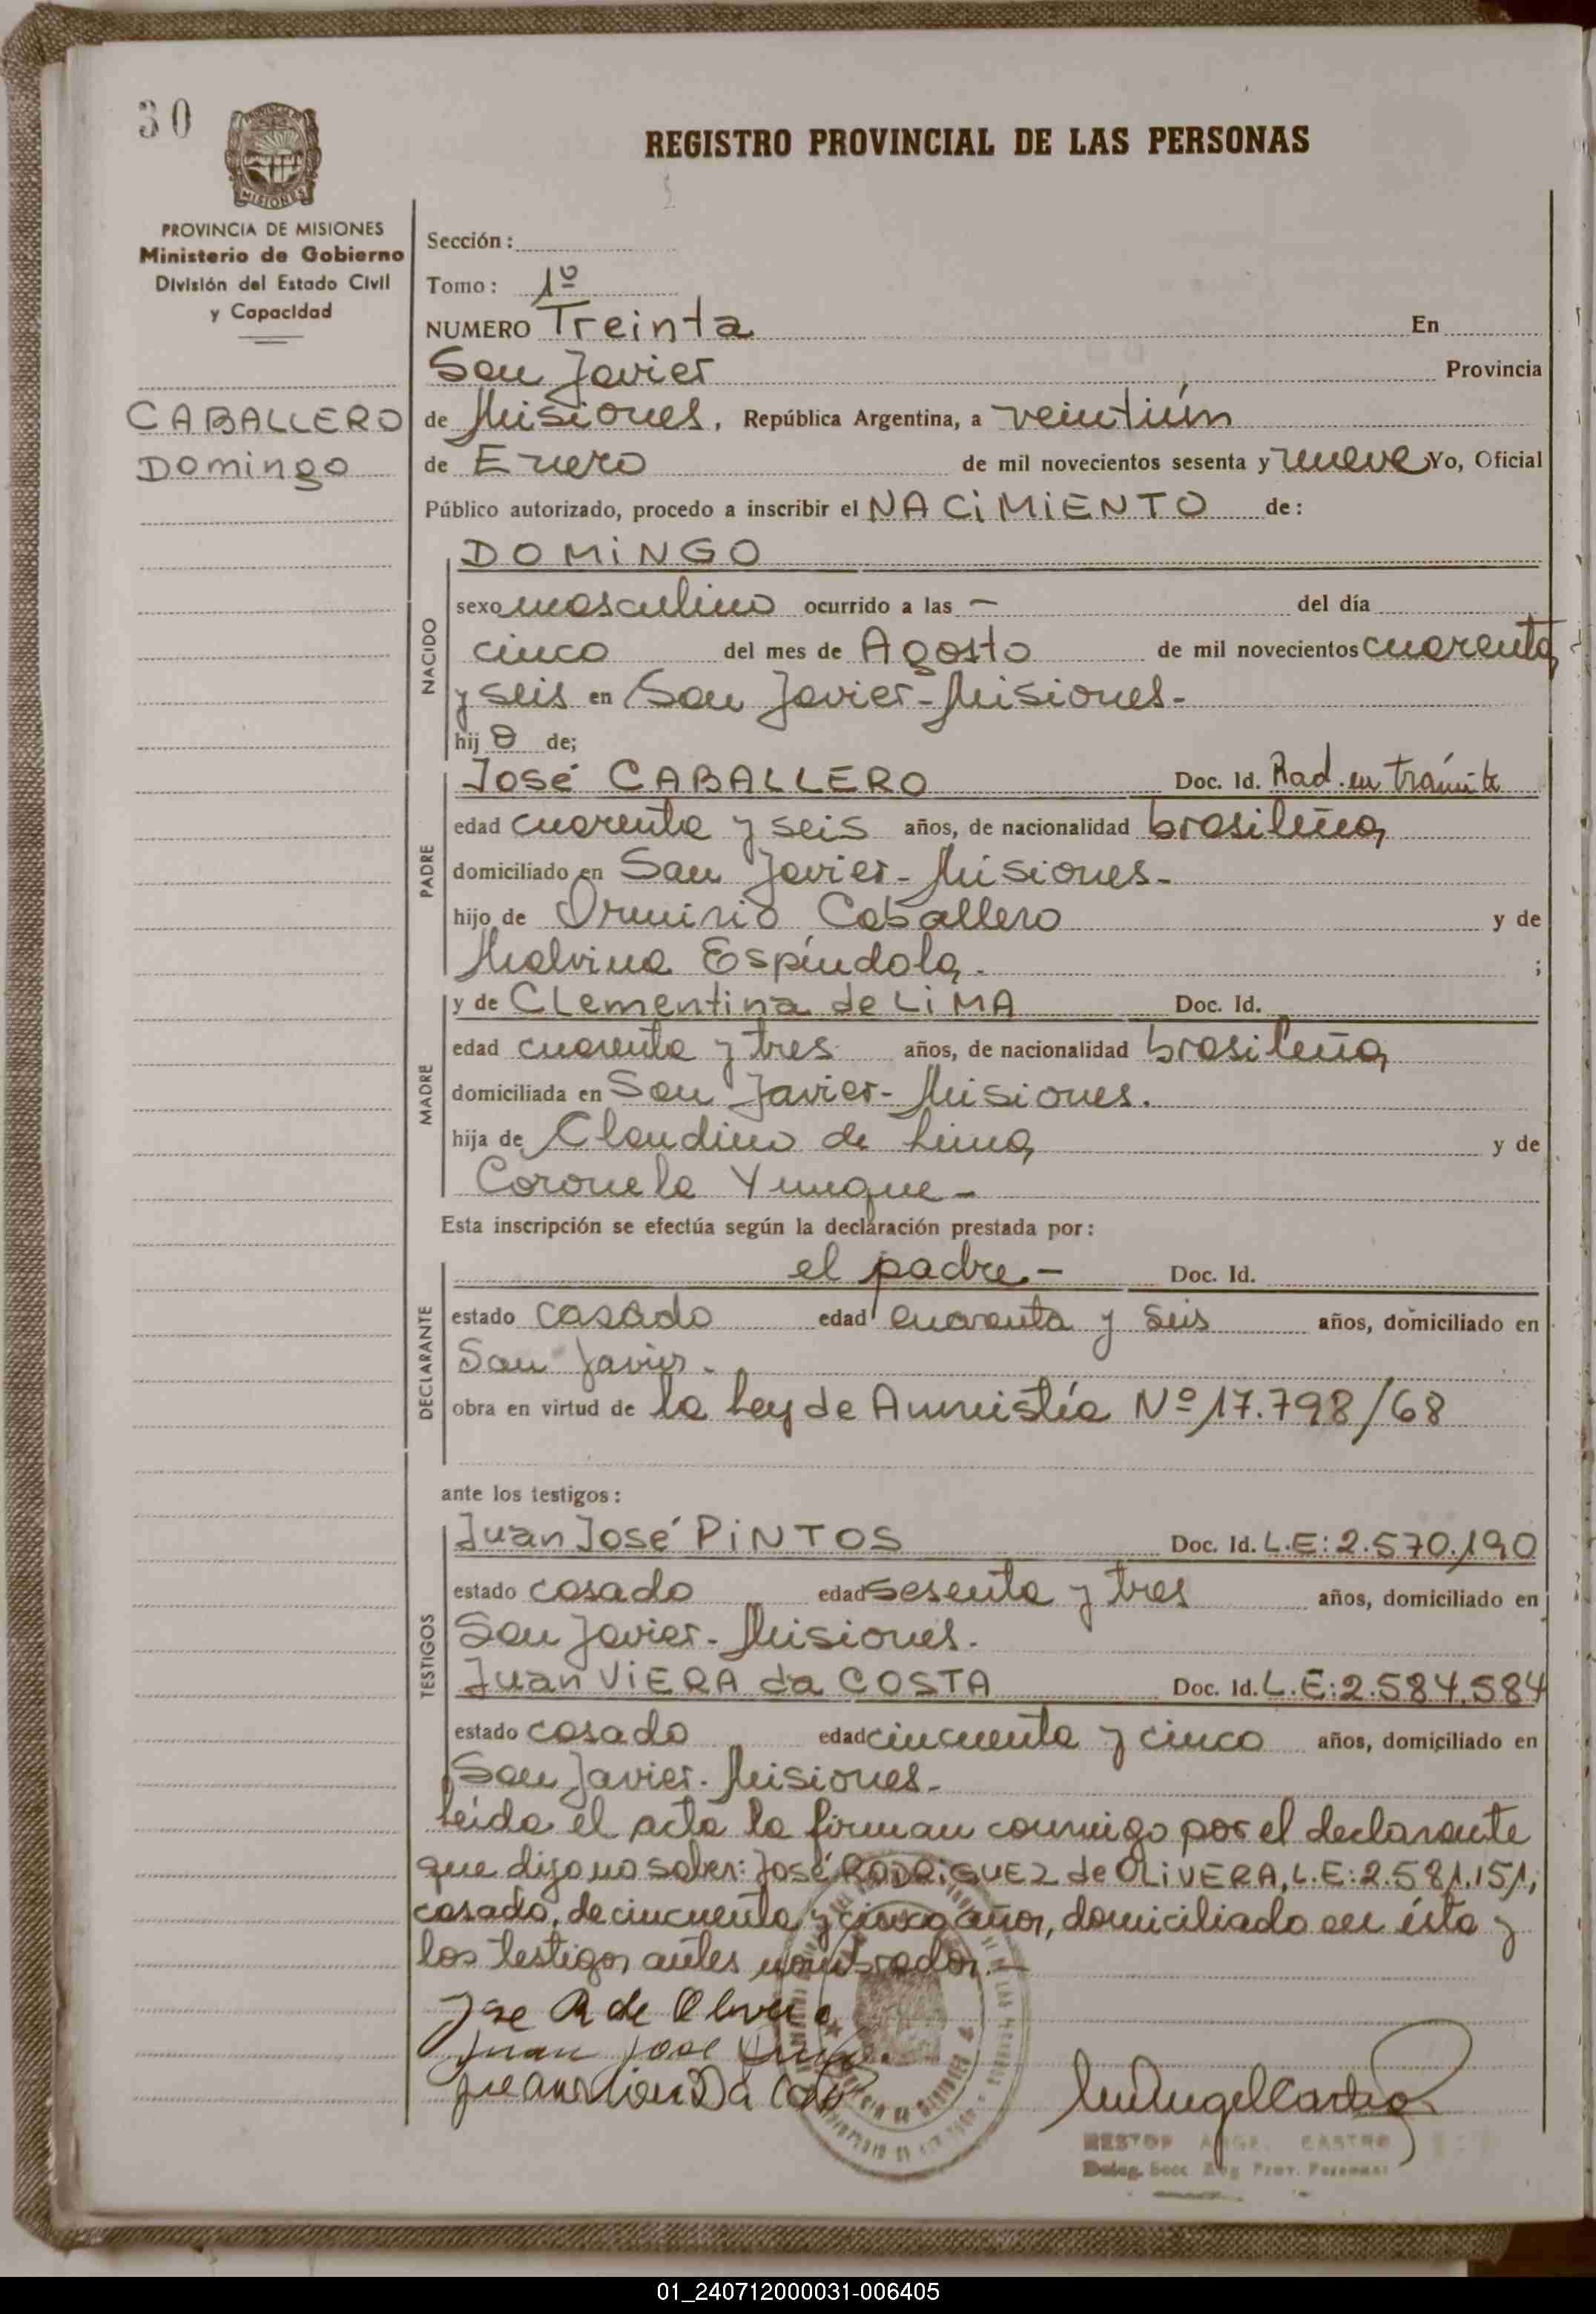 30
REGISTRO PROVINCIAL DE LAS PERSONAS
MISIONES
PROVINCIA DE MISIONES
Ministerio de Gobierno
División del Estado Civil
y Capacidad
CABALLERO
Domingo
Sección:
Tomo: 1º
NUMERO Treinta En
San Javier Provincia
de Misiones, República Argentina, a veintiún
de Enero de mil novecientos sesenta y nueve Yo, Oficial
Público autorizado, procedo a inscribir el NACIMIENTO de:
NACIDO
DOMINGO
sexo masculino ocurrido a las — del día
cinco del mes de Agosto de mil novecientos cuarenta
y seis en San Javier-Misiones-
hijo de;
PADRE
José CABALLERO Doc. Id. Rad. en trámite
edad cuarenta y seis años, de nacionalidad brasileña
domiciliado en San Javier-Misiones-
hijo de Ormirio Caballero y de
Malvina Espíndola. ;
MADRE
y de Clementina de LIMA Doc. Id.
edad cuarenta y tres años, de nacionalidad brasileña
domiciliada en San Javier-Misiones.
hija de Claudino de Lima y de
Coronela Yunque-
Esta inscripción se efectúa según la declaración prestada por:
DECLARANTE
el padre.- Doc. Id.
estado casado edad cuarenta y seis años, domiciliado en
San Javier.
obra en virtud de la Ley de Amnistía Nº 17.798/68
ante los testigos:
TESTIGOS
Juan José PINTOS Doc. Id. L.E: 2.570.190
estado casado edad sesenta y tres años, domiciliado en
San Javier-Misiones.
Juan VIERA da COSTA Doc. Id. L.E: 2.584.584
estado casado edad cincuenta y cinco años, domiciliado en
San Javier-Misiones-
Leída el acta la firman conmigo por el declarante
que dijo no saber: José RODRIGUEZ de OLIVERA, L.E: 2.581.151,
casado, de cincuenta y cinco años, domiciliado en ésta y
los testigos antes nombrados.—
Jose R de Olivera
Juan Jose
Juan Viera Da Costa
NESTOR ANGEL CASTRO
Deleg. Secc. Reg Prov. Personas
01_240712000031-006405